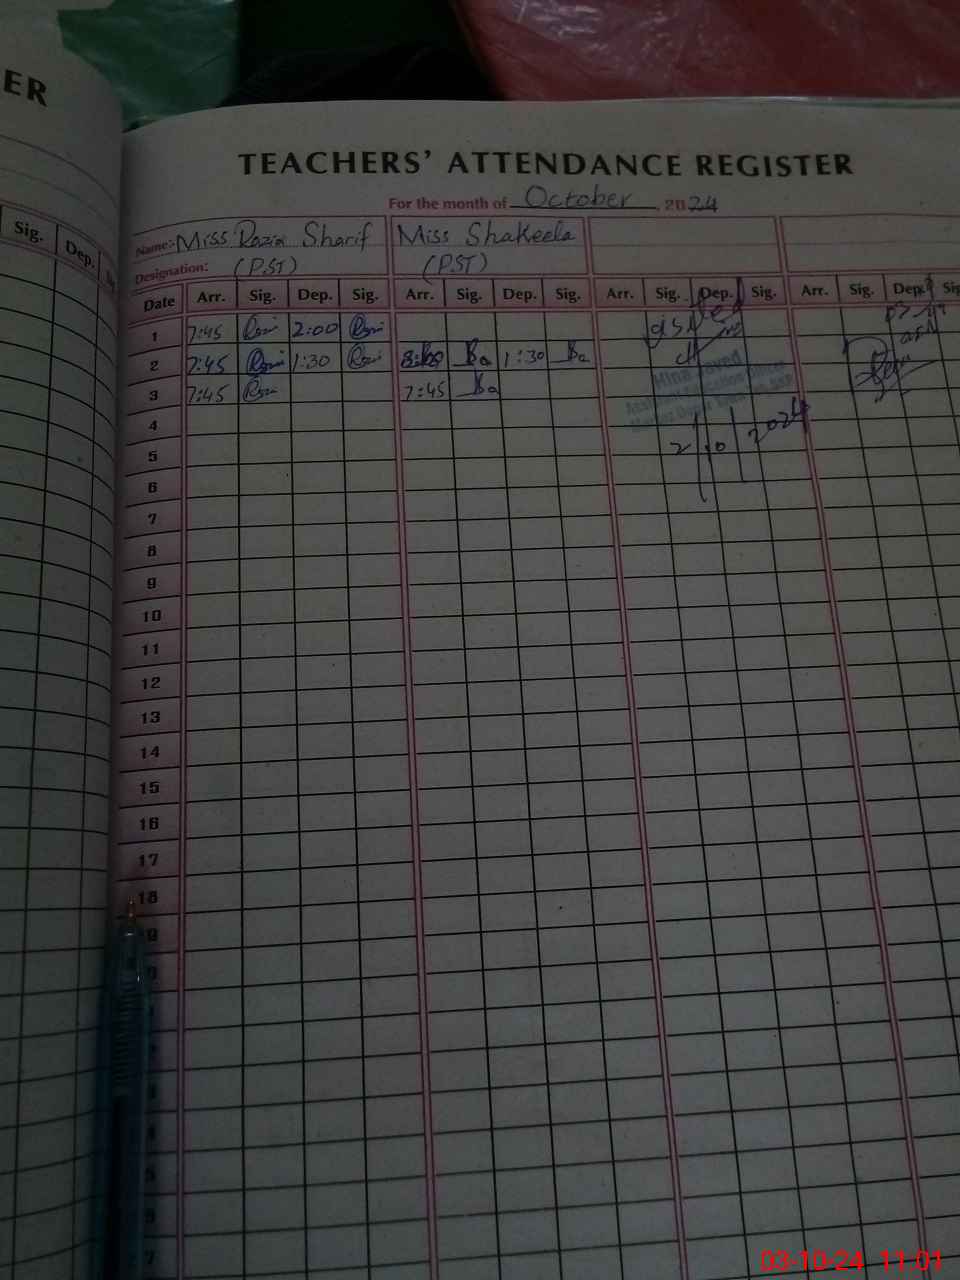 ER
Sig. Dep.
TEACHERS' ATTENDANCE REGISTER
For the month of October, 2024
Name:- Miss Razia Sharif Miss Shakeela
Designation: (PST) (PST)
Date Arr. Sig. Dep. Sig. Arr. Sig. Dep. Sig. Arr. Sig. Dep. Sig. Arr. Sig. Dep. Sig
1 7:45 2:00
2 7:45 1:30 1:30
3 7:45 7:45
Hina Javed
Assistant Education Officer
4
5
2/10/2024
6
7
8
9
10
11
12
13
14
15
16
17
18
03-10-24 11:01